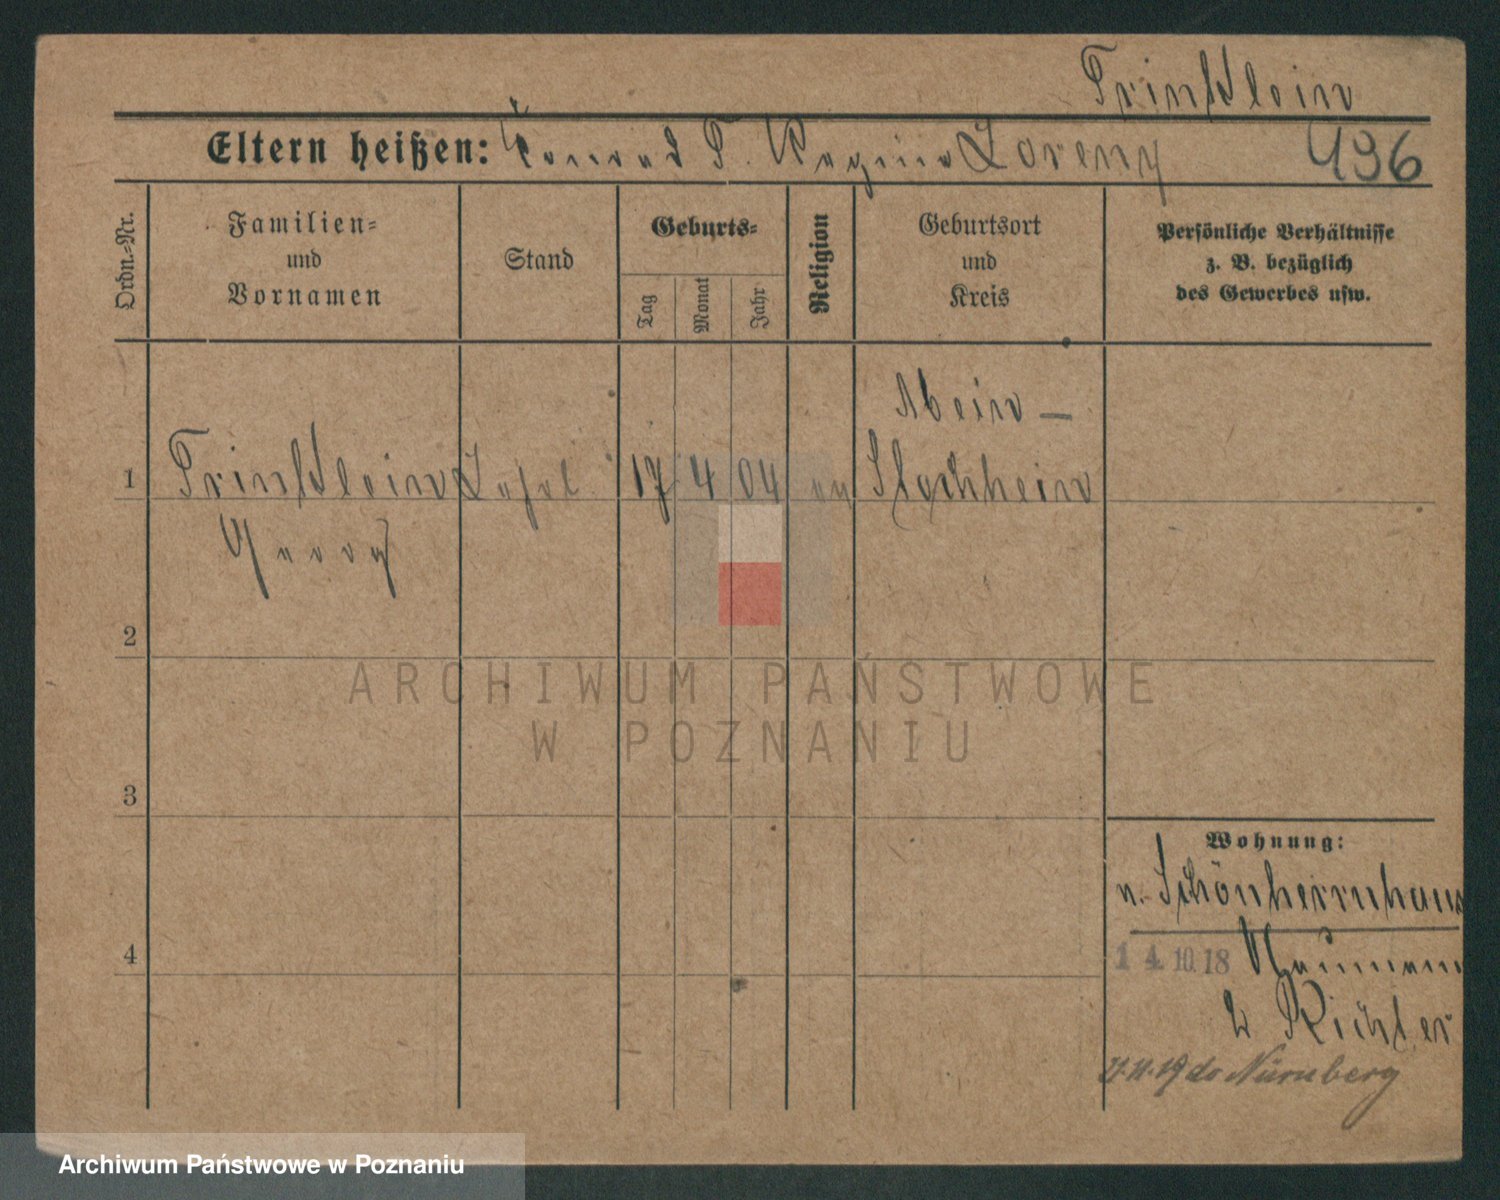 Trinklein
Eltern heißen: Konrad T. Regina Lorenz 496
Ordn.-Nr.
Familien- und Vornamen
Stand
Geburts-
Tag
Monat
Jahr
Religion
Geburtsort und Kreis
Persönliche Verhältnisse z. B. bezüglich des Gewerbes usw.
Mein—
1 Trinklein 17 4 04 ev Stockheim
Georg
2
3
4
Wohnung:
n. Schönherrnhaus
14.10.18 Naumann
Richter
19 do Nürnberg
ARCHIWUM PAŃSTWOWE
W POZNANIU
Archiwum Państwowe w Poznaniu